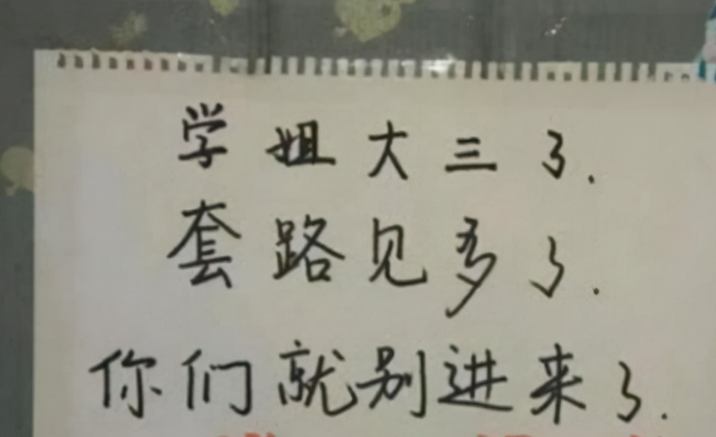 学姐大三了.
套路见多了.
你们就别进来了.